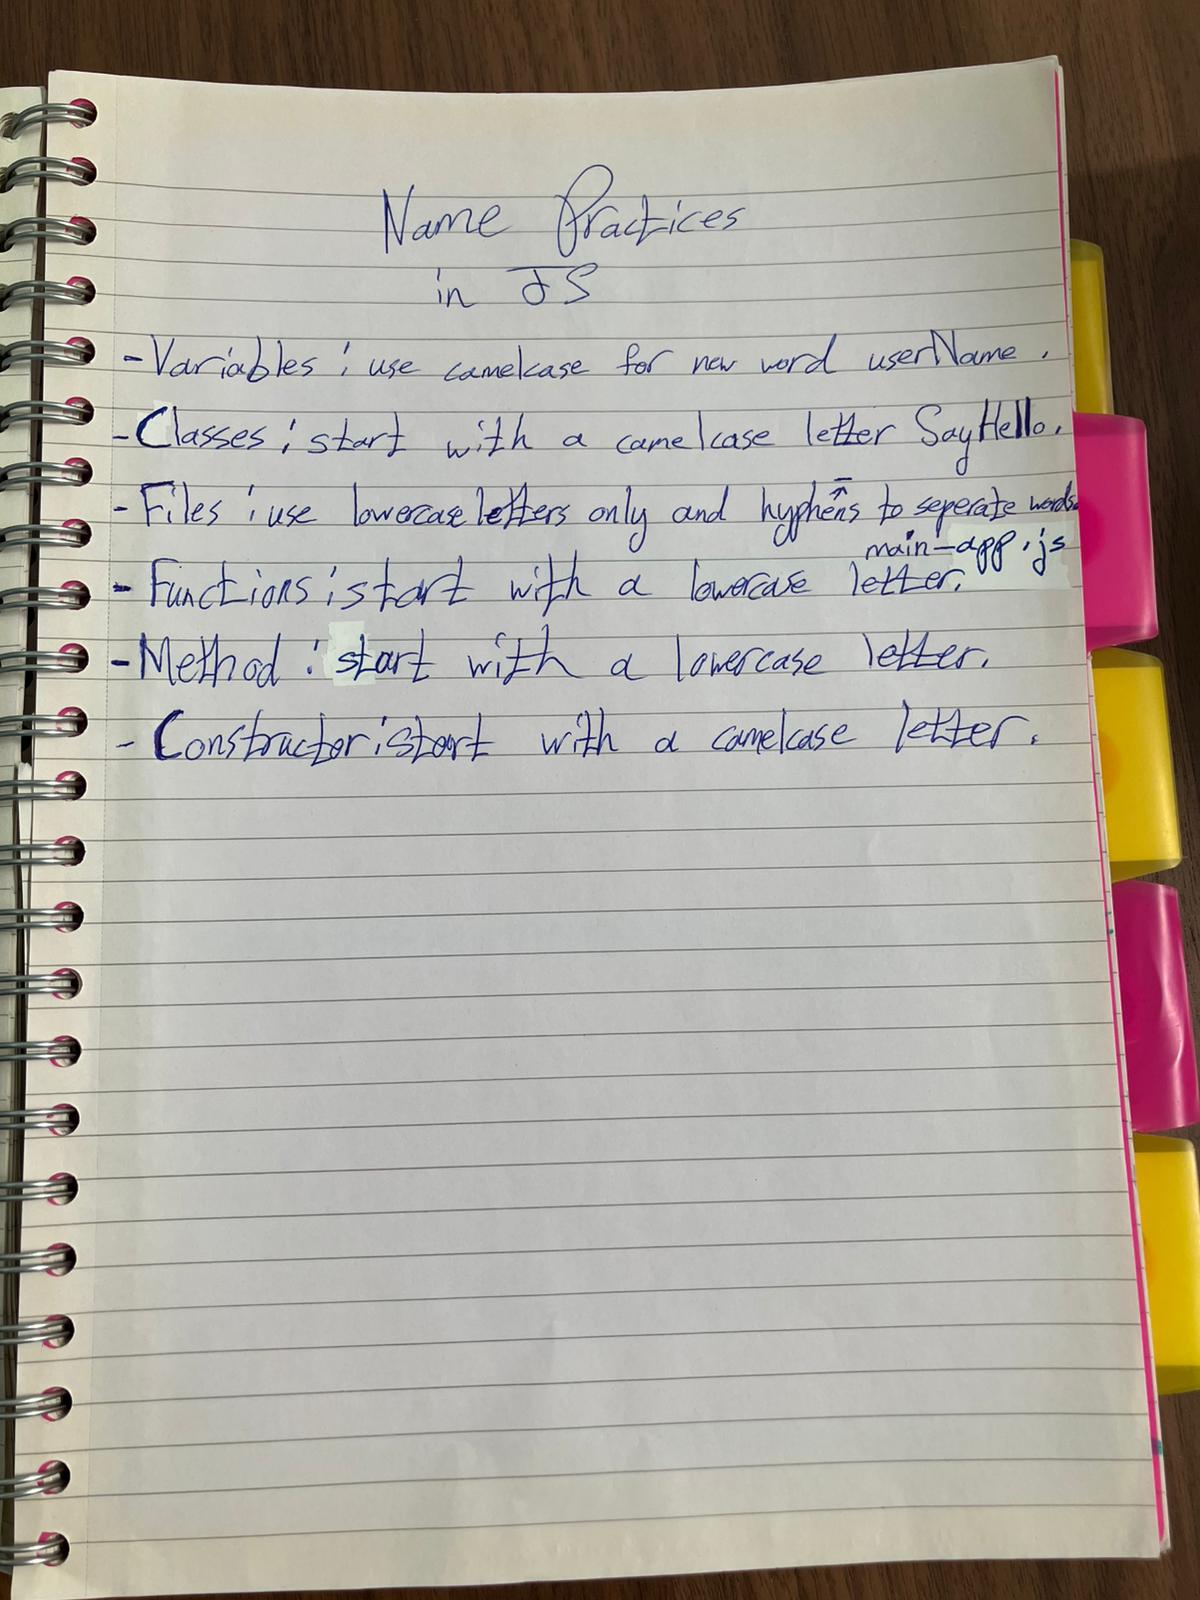 Name Practices
in JS
- Variables : use camelcase for new word userName .
- Classes : start with a camelcase letter SayHello.
- Files : use lowercase letters only and hyphens to seperate words.
main-app.js
- Functions : start with a lowercase letter.
- Method : start with a lowercase letter.
- Constractor : start with a camelcase letter .